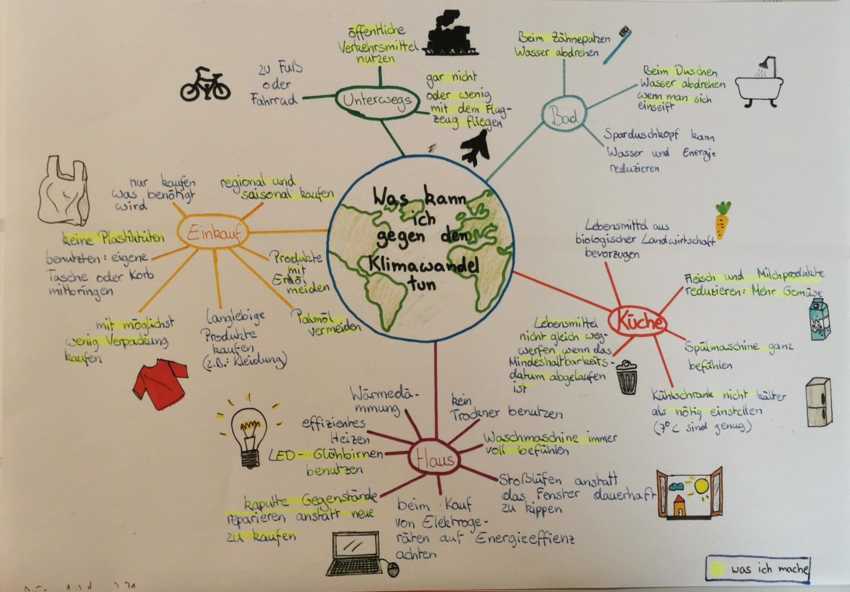 Was kann
ich
gegen den
Klimawandel
tun
Unterwegs
zu Fuß
oder
Fahrrad
öffentliche
Verkehrsmittel
nutzen
gar nicht
oder wenig
mit dem Flug-
zeug fliegen
Bad
Beim Zähneputzen
Wasser abdrehen
Beim Duschen
Wasser abdrehen
wenn man sich
einseift
Sparduschkopf kann
Wasser und Energie
reduzieren
Einkauf
nur kaufen
was benötigt
wird
regional und
saisonal kaufen
keine Plastiktüten
benutzten: eigene
Tasche oder Korb
mitbringen
Produkte
mit
meiden
mit möglichst
wenig Verpackung
kaufen
Langlebige
Produkte
kaufen
(z.B.: Kleidung)
Palmöl
vermeiden
Küche
Lebensmittel aus
biologischer Landwirtschaft
bevorzugen
Fleisch und Milchprodukte
reduzieren: Mehr Gemüse
Lebensmittel
nicht gleich weg-
werfen wenn das
Mindeshaltbarkeits-
datum abgelaufen
ist
Spülmaschine ganz
befühlen
Kühlschrank nicht kälter
als nötig einstellen
(7°C sind genug)
Haus
Wärmedä-
mmung
kein
Trockner benutzen
effizientes
Heizen
Waschmaschine immer
voll befühlen
LED-Glühbirnen
benutzen
Stoßlüfen anstatt
das Fenster dauerhaft
zu kippen
kaputte Gegenstände
reparieren anstatt neue
zu kaufen
beim Kauf
von Elektroge-
räten auf Energieeffienz
achten
was ich mache